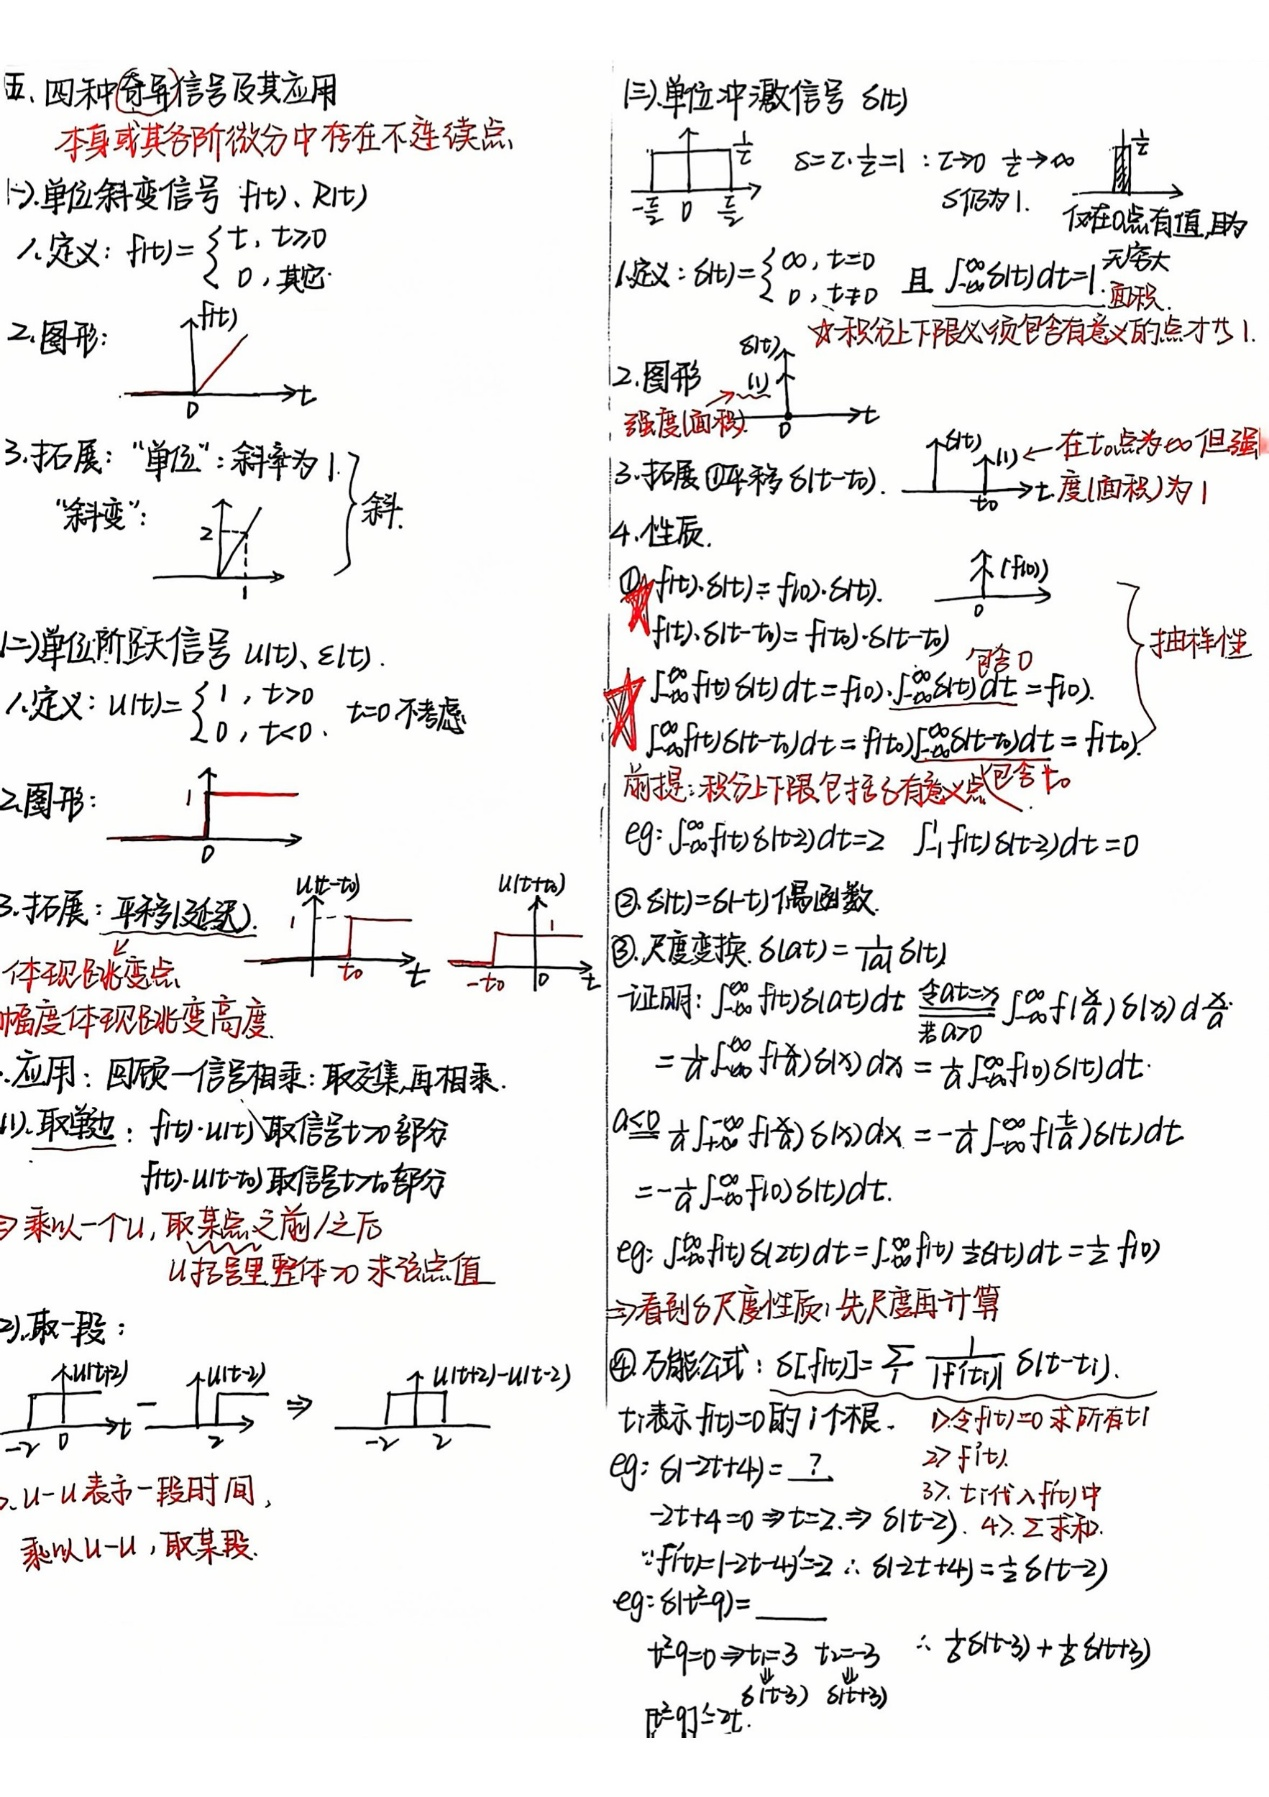 五、四种奇异信号及其应用
本身或其各阶微分中存在不连续点
(一).单位斜变信号 f(t)、R(t)
1.定义：f(t)={t，t≥0
0，其它.
2.图形：
f(t)
t
0
3.拓展：“单位”：斜率为1.
“斜变”：
斜.
2
1
(二)单位阶跃信号 u(t)、ε(t).
1.定义：u(t)={1，t>0
0，t<0. t=0不考虑
2.图形：
1
0
3.拓展：平移(延迟).
u(t-t₀)
1
t₀ t
u(t+t₀)
1
-t₀ 0 t
体现跳变点
幅度体现跳变高度.
.应用：回顾一信号相乘：取交集,再相乘.
(1).取单边：f(t)·u(t)取信号t>0部分
f(t)·u(t-t₀)取信号t>t₀部分
⇒乘以一个u，取某点之前/之后
u括号里整体>0求该点值
2).取一段：
u(t+2) — u(t-2) ⇒ u(t+2)-u(t-2)
-2 0 t 2 -2 2
u-u表示一段时间，
乘以u-u，取某段.
(三).单位冲激信号 δ(t)
1/τ
-τ/2 0 τ/2
S=τ·1/τ=1：τ→0 1/τ→∞
S仍为1.
1/τ
仅在0点有值,且为
无穷大
1.定义：δ(t)={∞，t=0
0，t≠0 且 ∫_{-∞}^{∞}δ(t)dt=1.
面积.
☆积分上下限必须包含有意义的点才为1.
2.图形
δ(t)
(1)
强度(面积).
0 t
3.拓展①平移δ(t-t₀).
δ(t)
(1)←在t₀点为∞但强
t₀ t 度(面积)为1
4.性质.
①f(t)·δ(t)=f(0)·δ(t).
(f(0))
0
f(t)·δ(t-t₀)=f(t₀)·δ(t-t₀)
抽样性
包含0
∫_{-∞}^{∞}f(t)δ(t)dt=f(0)·∫_{-∞}^{∞}δ(t)dt=f(0).
∫_{-∞}^{∞}f(t)δ(t-t₀)dt=f(t₀)∫_{-∞}^{∞}δ(t-t₀)dt=f(t₀).
前提：积分上下限包括δ有意义点 包含t₀
eg：∫_{-∞}^{∞}f(t)δ(t-2)dt=2 ∫_{-1}^{1}f(t)δ(t-2)dt=0
②.δ(t)=δ(-t)偶函数.
③.尺度变换.δ(at)=1/|a| δ(t)
证明：∫_{-∞}^{∞}f(t)δ(at)dt 令at=x 若a>0 ∫_{-∞}^{∞}f(x/a)δ(x)d x/a.
=1/a∫_{-∞}^{∞}f(x/a)δ(x)dx=1/a∫_{-∞}^{∞}f(0)δ(t)dt.
a<0 1/a∫_{+∞}^{-∞}f(x/a)δ(x)dx=-1/a∫_{-∞}^{∞}f(t/a)δ(t)dt
=-1/a∫_{-∞}^{∞}f(0)δ(t)dt.
eg：∫_{-∞}^{+∞}f(t)δ(2t)dt=∫_{-∞}^{∞}f(t)1/2δ(t)dt=1/2 f(0)
⇒看到δ尺度性质，先尺度再计算
④.万能公式：δ[f(t)]=Σ_i 1/|f'(tᵢ)| δ(t-tᵢ).
tᵢ表示f(t)=0的i个根.
1>令f(t)=0求所有tᵢ
2>f'(t).
3>.tᵢ代入f'(t)中
4>.Σ求和.
eg：δ(-2t+4)=?
-2t+4=0⇒t=2.⇒δ(t-2).
∵f'(t)=(-2t-4)'=-2 ∴δ(-2t+4)=1/2δ(t-2)
eg：δ(t²-9)=____
t²-9=0⇒t₁=3 t₂=-3 ∴1/6δ(t-3)+1/6δ(t+3)
⇓ ⇓
δ(t-3) δ(t+3)
[t²-9]'=2t.